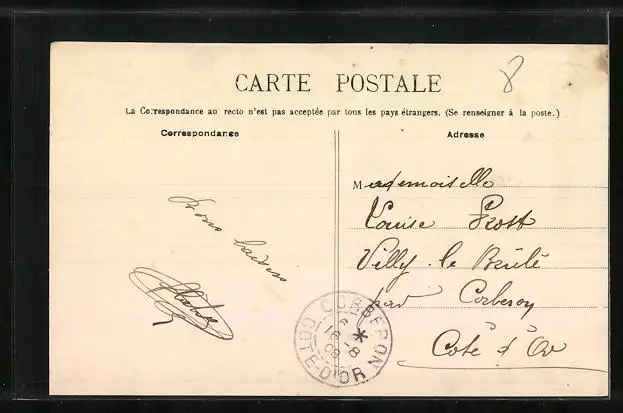 8
CARTE POSTALE
La Correspondance au recto n'est pas acceptée par tous les pays étrangers. (Se renseigner à la poste.)
Correspondance
Adresse
Mademoiselle
Louise Prost
Villy le Brûlé
par Corberon
Côte d'Or
Bons baisers
CORBERON
COTE-D'OR